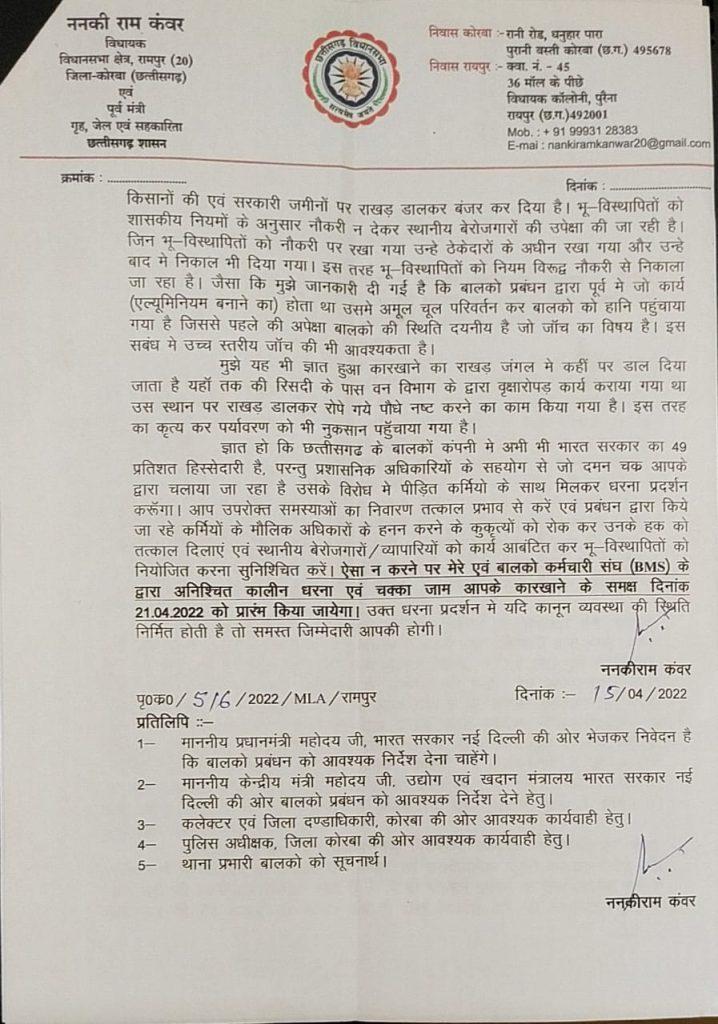 ननकी राम कंवर
विधायक
विधानसभा क्षेत्र, रामपुर (20)
जिला-कोरबा (छत्तीसगढ़)
एवं
पूर्व मंत्री
गृह, जेल एवं सहकारिता
छत्तीसगढ़ शासन
छत्तीसगढ़ विधानसभा
सत्यमेव जयते
निवास कोरबा :- रानी रोड, धनुहार पारा
पुरानी बस्ती कोरबा (छ.ग.) 495678
निवास रायपुर :- क्वा. नं. - 45
36 मॉल के पीछे
विधायक कॉलोनी, पुरैना
रायपुर (छ.ग.)492001
Mob. : + 91 99931 28383
E-mai : nankiramkanwar20@gmail.com
क्रमांक : ........................
दिनांक : ........................
किसानों की एवं सरकारी जमीनों पर राखड़ डालकर बंजर कर दिया है। भू–विस्थापितों को
शासकीय नियमों के अनुसार नौकरी न देकर स्थानीय बेरोजगारों की उपेक्षा की जा रही है।
जिन भू–विस्थापितों को नौकरी पर रखा गया उन्हे ठेकेदारों के अधीन रखा गया और उन्हे
बाद मे निकाल भी दिया गया। इस तरह भू–विस्थापितों को नियम विरूद्व नौकरी से निकाला
जा रहा है। जैसा कि मुझे जानकारी दी गई है कि बालको प्रबंधन द्वारा पूर्व मे जो कार्य
(एल्यूमिनियम बनाने का) होता था उसमे अमूल चूल परिवर्तन कर बालको को हानि पहुंचाया
गया है जिससे पहले की अपेक्षा बालको की स्थिति दयनीय है जो जॉच का विषय है। इस
सबंध मे उच्च स्तरीय जॉच की भी आवश्यकता है।
मुझे यह भी ज्ञात हुआ कारखाने का राखड़ जंगल मे कहीं पर डाल दिया
जाता है यहॉ तक की रिसदी के पास वन विभाग के द्वारा वृक्षारोपड़ कार्य कराया गया था
उस स्थान पर राखड़ डालकर रोपे गये पौधे नष्ट करने का काम किया गया है। इस तरह
का कृत्य कर पर्यावरण को भी नुकसान पहुॅचाया गया है।
ज्ञात हो कि छत्तीसगढ के बालकों कंपनी मे अभी भी भारत सरकार का 49
प्रतिशत हिस्सेदारी है, परन्तु प्रशासनिक अधिकारियों के सहयोग से जो दमन चक आपके
द्वारा चलाया जा रहा है उसके विरोध मे पीड़ित कर्मियो के साथ मिलकर धरना प्रदर्शन
करूॅगा। आप उपरोक्त समस्याओं का निवारण तत्काल प्रभाव से करें एवं प्रबंधन द्वारा किये
जा रहे कर्मियों के मौलिक अधिकारों के हनन करने के कुकृत्यों को रोक कर उनके हक को
तत्काल दिलाएं एवं स्थानीय बेरोजगारों/व्यापारियों को कार्य आबंटित कर भू–विस्थापितों को
नियोजित करना सुनिश्चित करें। ऐसा न करने पर मेरे एवं बालको कर्मचारी संघ (BMS) के
द्वारा अनिश्चित कालीन धरना एवं चक्का जाम आपके कारखाने के समक्ष दिनांक
21.04.2022 को प्रारंम किया जायेगा। उक्त धरना प्रदर्शन मे यदि कानून व्यवस्था की स्थिति
निर्मित होती है तो समस्त जिम्मेदारी आपकी होगी।
ननकीराम कंवर
पृ0क0/516/2022/MLA/रामपुर
दिनांक :– 15/04/2022
प्रतिलिपि ::–
1– माननीय प्रधानमंत्री महोदय जी, भारत सरकार नई दिल्ली की ओर भेजकर निवेदन है
कि बालको प्रबंधन को आवश्यक निर्देश देना चाहेंगे।
2– माननीय केन्द्रीय मंत्री महोदय जी, उद्योग एवं खदान मंत्रालय भारत सरकार नई
दिल्ली की ओर बालको प्रबंधन को आवश्यक निर्देश देने हेतु।
3– कलेक्टर एवं जिला दण्डाधिकारी, कोरबा की ओर आवश्यक कार्यवाही हेतु।
4– पुलिस अधीक्षक, जिला कोरबा की ओर आवश्यक कार्यवाही हेतु।
5– थाना प्रभारी बालको को सूचनार्थ।
ननकीराम कंवर